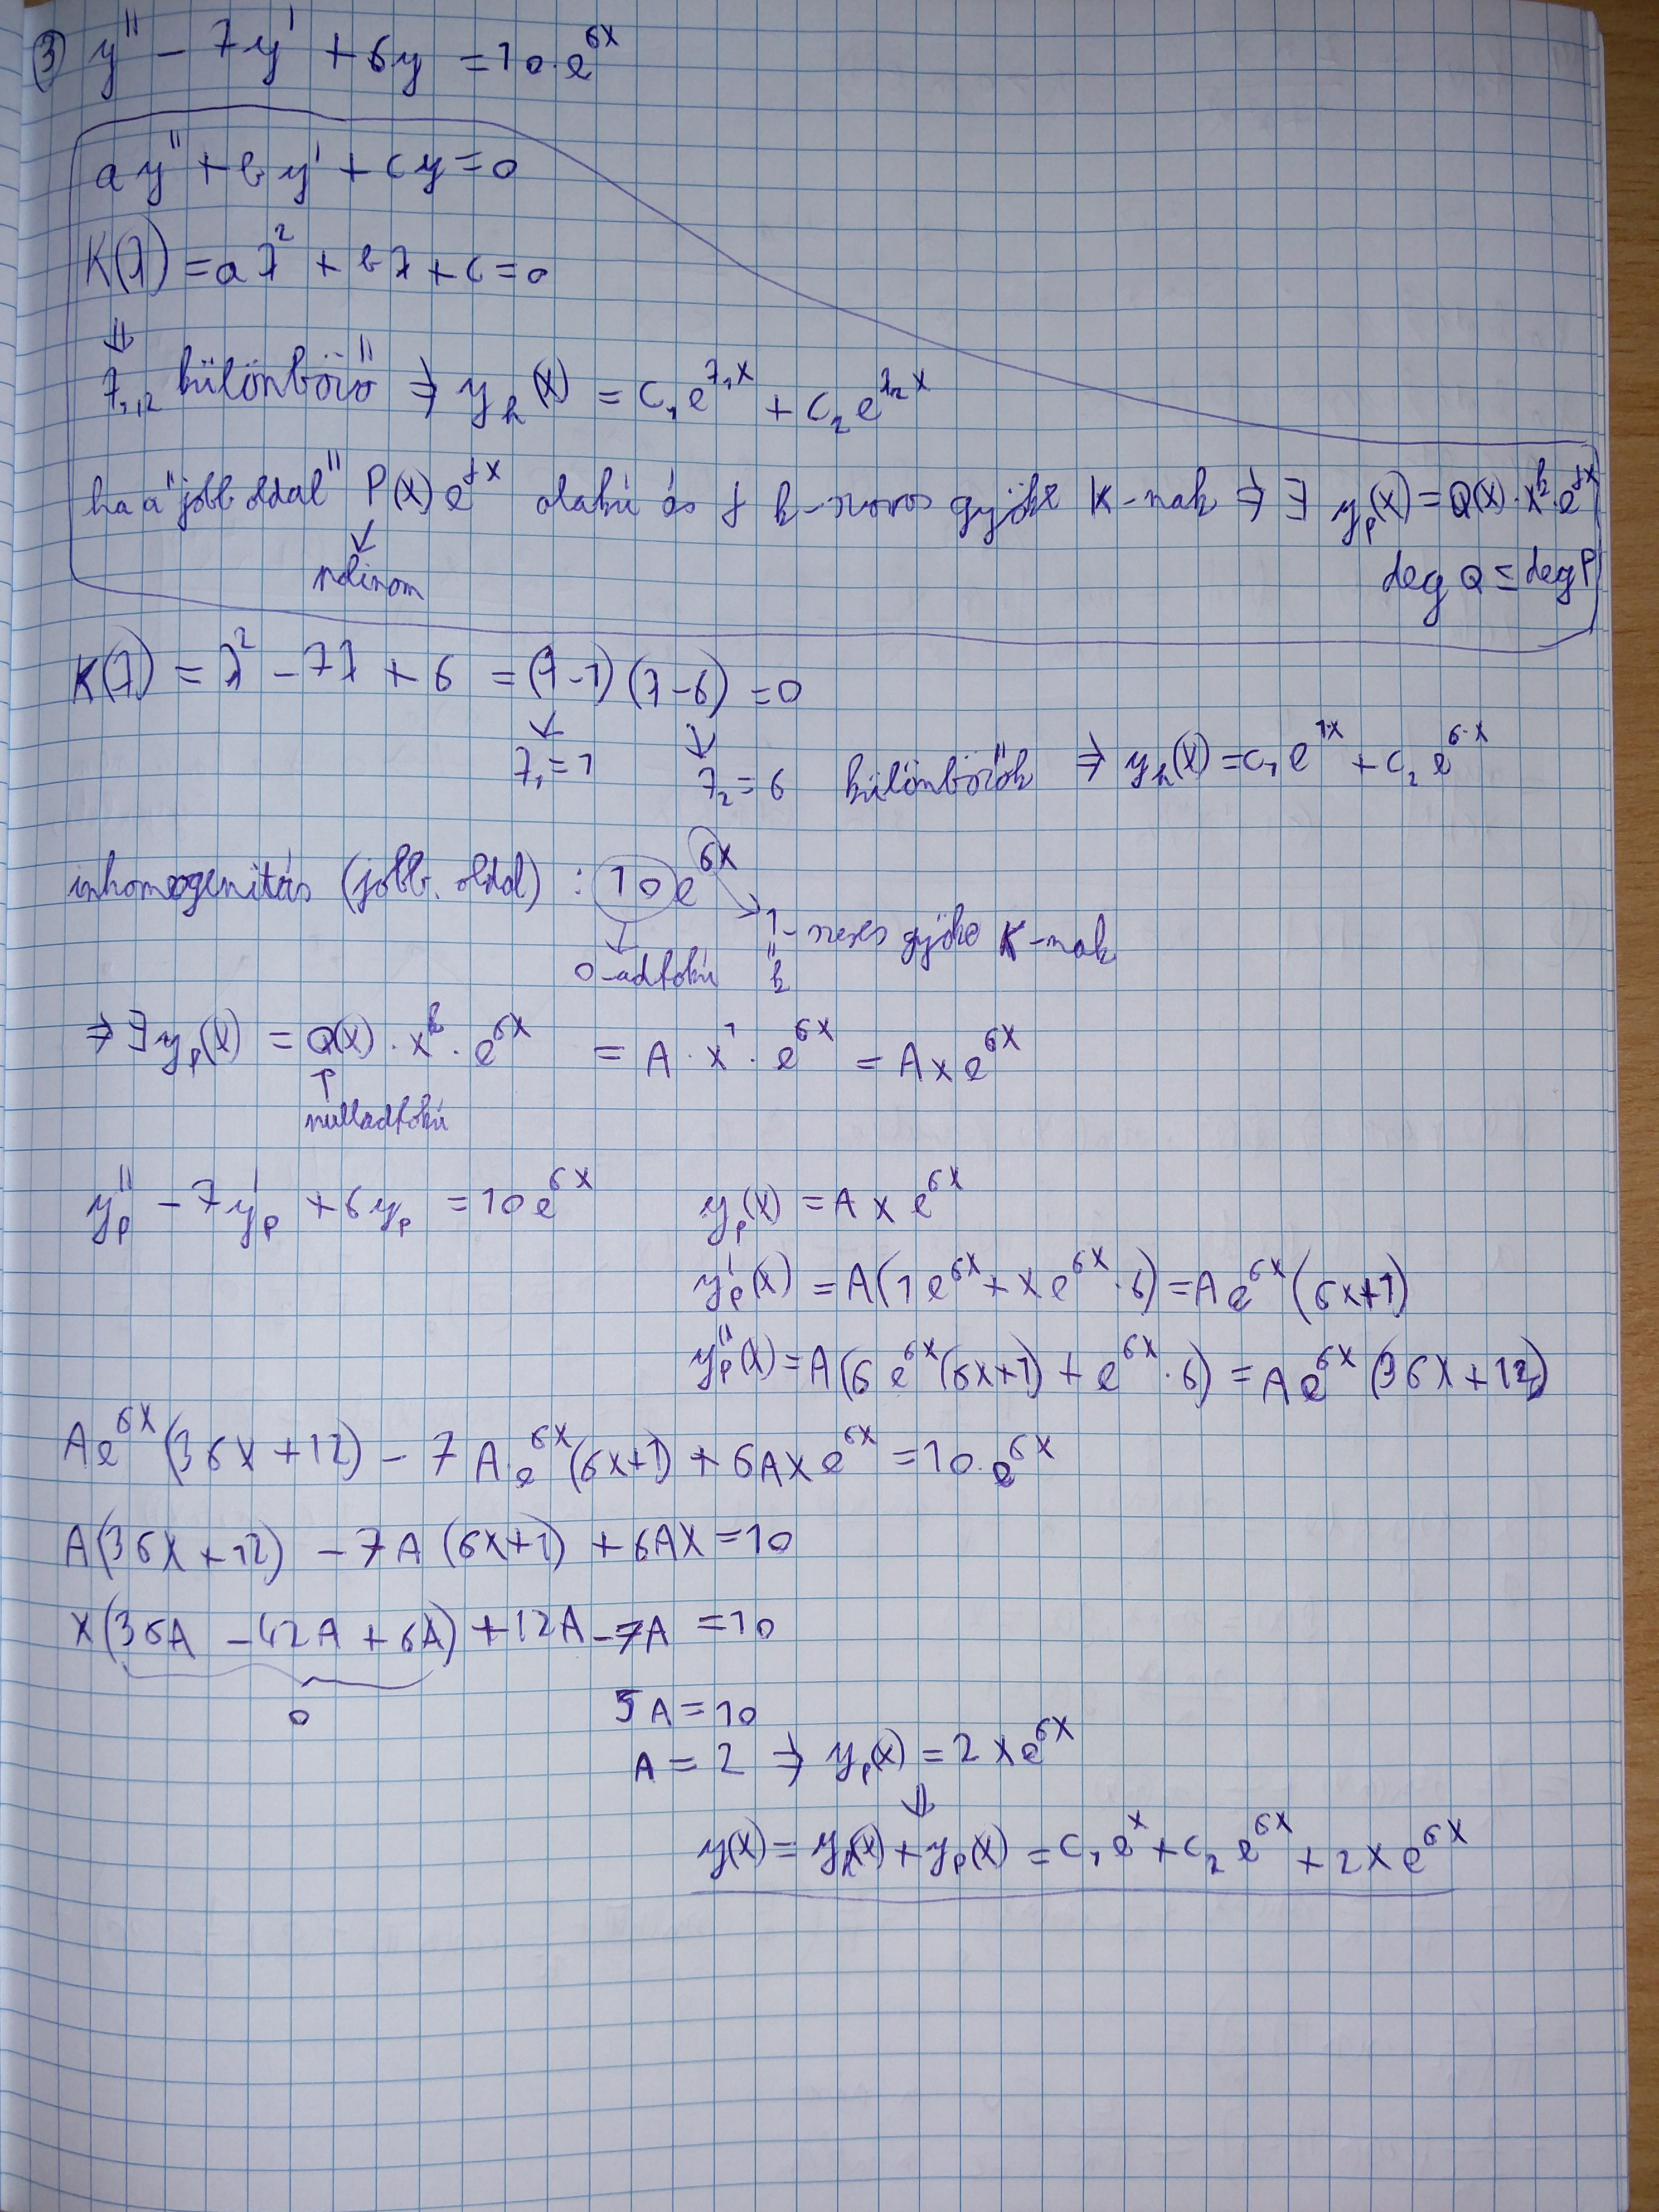 ③ y'' - 7y' + 6y = 10·e^{6x}
ay'' + by' + cy = 0
K(λ) = aλ² + bλ + c = 0
⇓
λ₁,₂ különböző ⇒ y_h(x) = c₁e^{λ₁x} + c₂e^{λ₂x}
ha a "jobb oldal" P(x)e^{γx} alakú és γ k-szoros gyöke K-nak ⇒ ∃ y_p(x) = Q(x)·x^k·e^{γx}
↓
polinom deg Q = deg P
K(λ) = λ² - 7λ + 6 = (λ-1)(λ-6) = 0
↓ ↓
λ₁ = 1 λ₂ = 6 különbözők ⇒ y_h(x) = c₁e^{1·x} + c₂e^{6·x}
inhomogenitás (jobb. oldal) : 10e^{6x}
↓ 1-szeres gyöke K-nak
0-adfokú = k
⇒ ∃ y_p(x) = Q(x)·x^k·e^{6x} = A·x¹·e^{6x} = Axe^{6x}
↑
nulladfokú
y_p'' - 7y_p' + 6y_p = 10e^{6x} y_p(x) = Axe^{6x}
y_p'(x) = A(1e^{6x} + xe^{6x}·6) = Ae^{6x}(6x+1)
y_p''(x) = A(6e^{6x}(6x+1) + e^{6x}·6) = Ae^{6x}(36x+12)
Ae^{6x}(36x+12) - 7A·e^{6x}(6x+1) + 6Axe^{6x} = 10·e^{6x}
A(36x+12) - 7A(6x+1) + 6Ax = 10
x(36A - 42A + 6A) + 12A - 7A = 10
0 5A = 10
A = 2 ⇒ y_p(x) = 2xe^{6x}
⇓
y(x) = y_h(x) + y_p(x) = c₁e^x + c₂e^{6x} + 2xe^{6x}